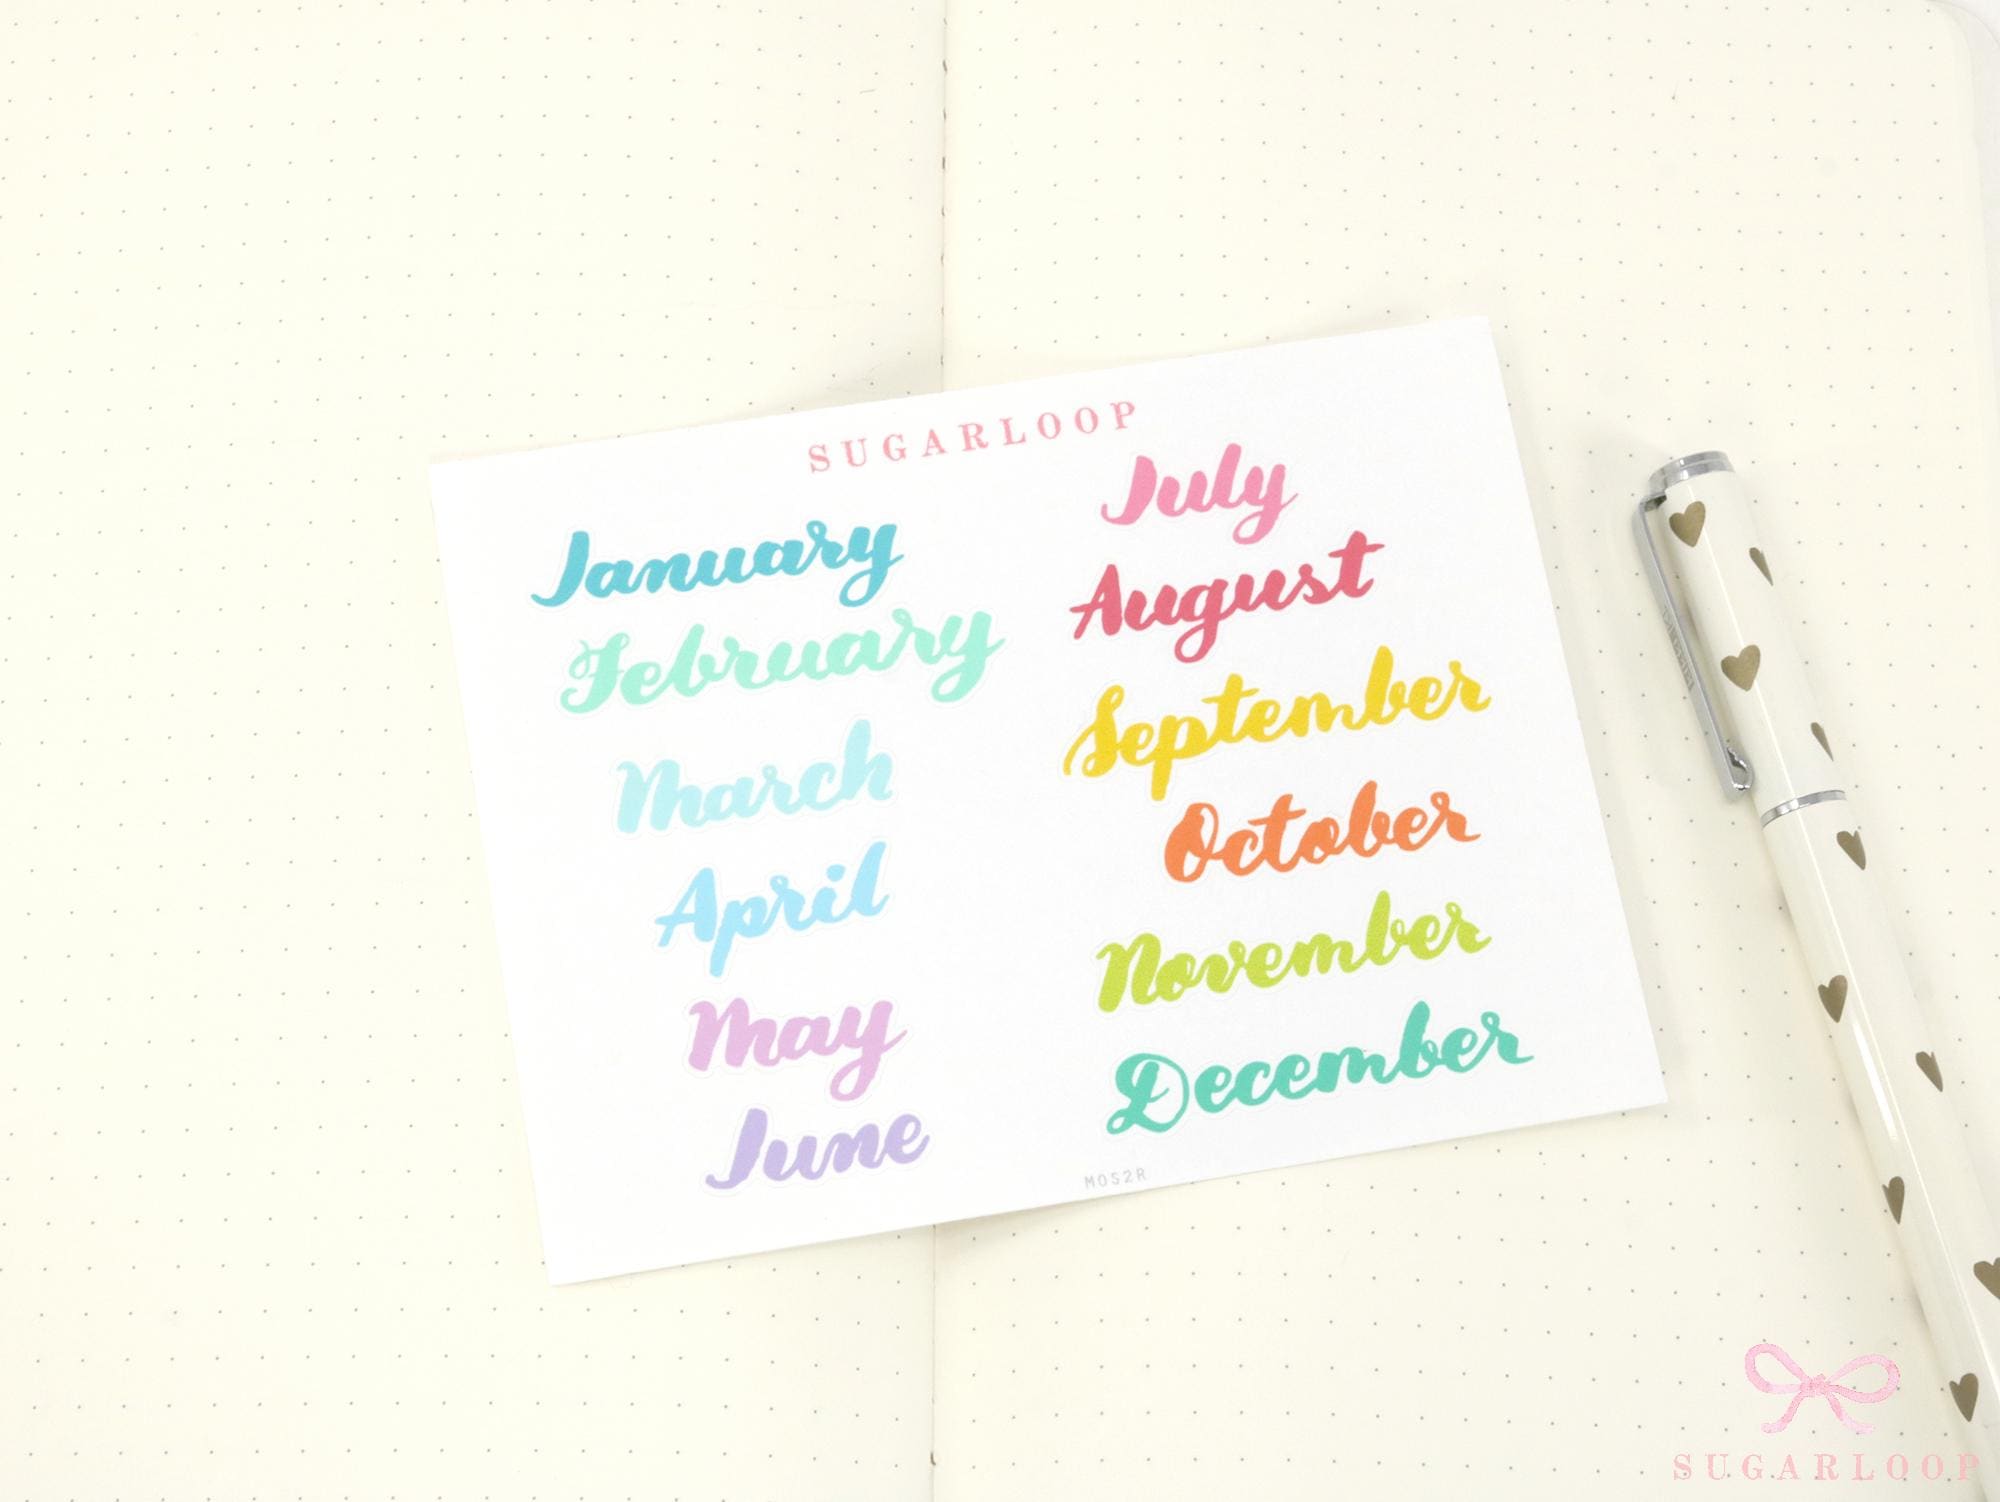 SUGARLOOP
January
February
March
April
May
June
July
August
September
October
November
December
MOS2R
SUGARLOOP